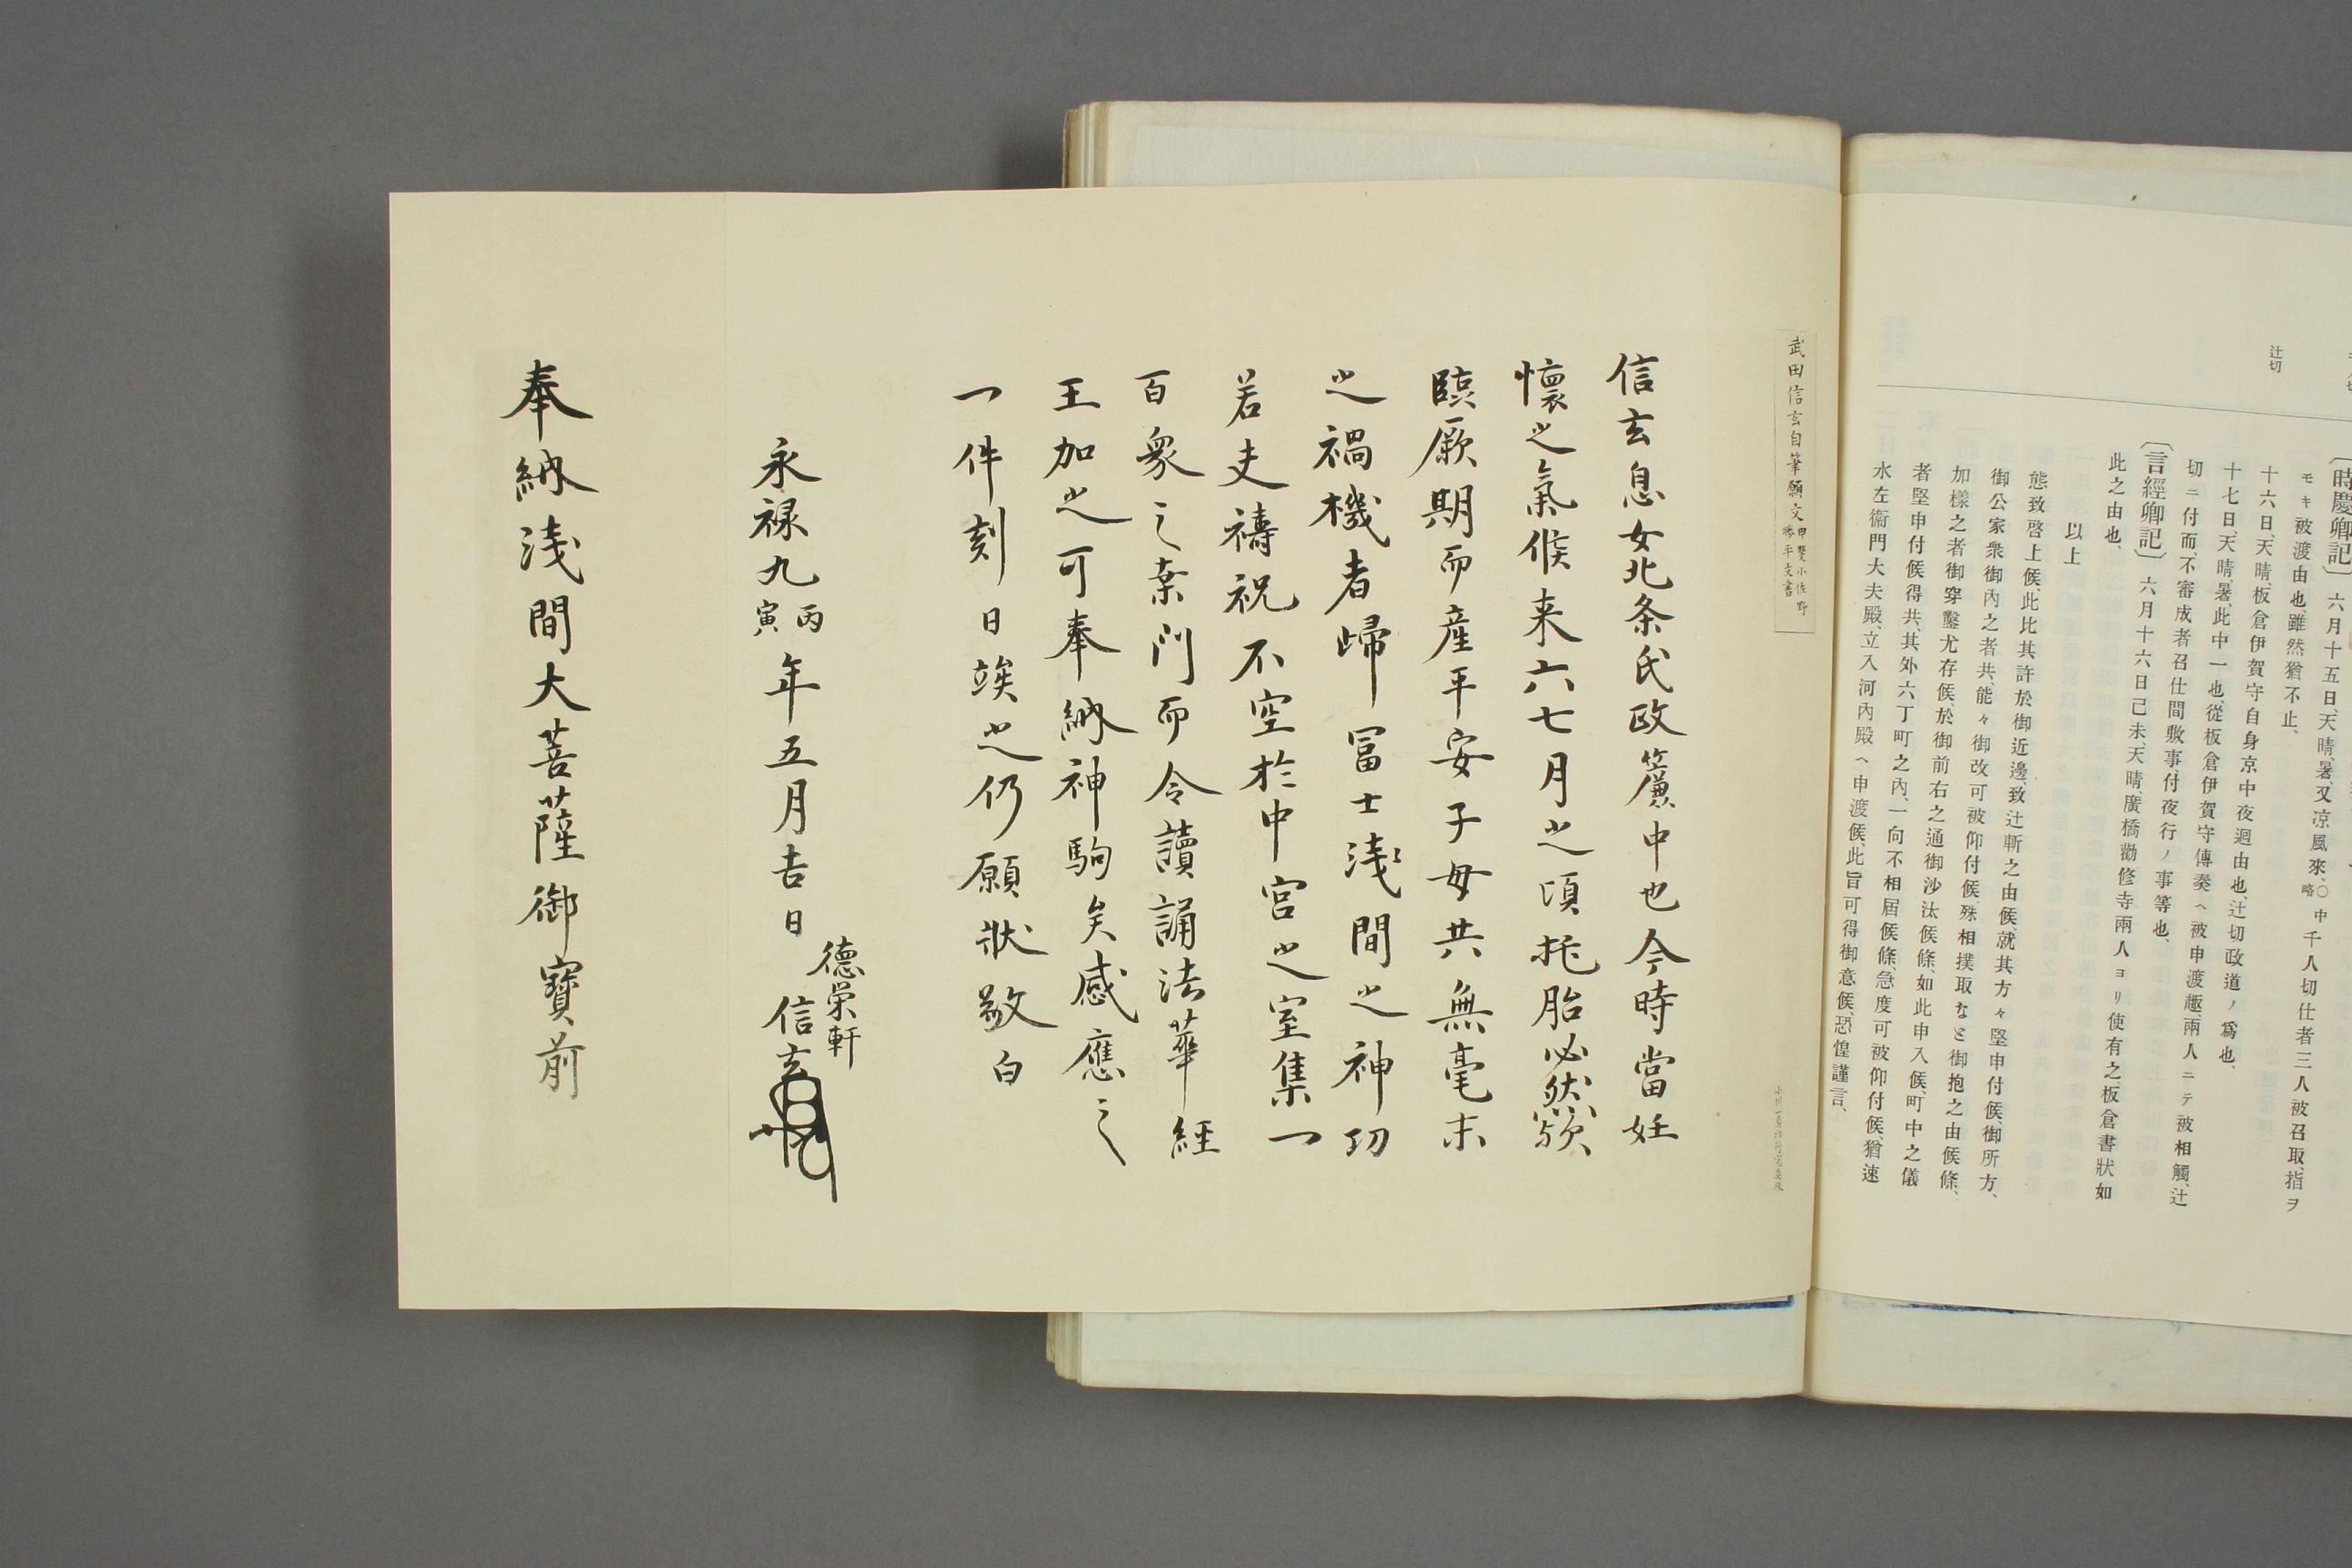 辻切
〔時慶卿記〕 六月十五日、天晴、暑、又涼風來、○中略 千人切仕者三人被召取、指ヲ
モキ被渡由也、雖然猶不止、
十六日、天晴、板倉伊賀守自身京中夜廻由也、辻切政道ノ爲也、
十七日、天晴、暑、此中一也、從板倉伊賀守傳奏ヘ被申渡趣、兩人ニテ被相觸、辻
切ニ付而、不審成者召仕間敷事付夜行ノ事等也、
〔言經卿記〕 六月十六日己未、天晴、廣橋勸修寺兩人ヨリ使有之、板倉書狀如
此之由也、
以上
態致啓上候、此比其許於御近邊、致辻斬之由候、就其方々堅申付候、御所方、
御公家衆御內之者共、能々御改可被仰付候、殊相撲取なと御抱之由候條、
加樣之者御穿鑿尤存候、於御前右之通御沙汰候條、如此申入候、町中之儀
者堅申付候得共、其外六丁町之內、一向不相屆候條、急度可被仰付候、猶速
水左衞門大夫殿、立入河內殿ヘ申渡候、此旨可得御意候、恐惶謹言、
武田信玄自筆願文 甲斐小佐野勝平文書
信玄息女北条氏政簾中也今時當妊
懷之氣候来六七月之頃托胎必然歟
臨厥期而産平安子母共無毫末
之禍機者帰冨士浅間之神功
若夫禱祝不空於中宮之室集一
百衆之桒門而令讀誦法華経
王加之可奉納神駒矣感應之
一件刻日竢之仍願状敬白
永禄九丙寅年五月吉日
德榮軒
信玄
奉納浅間大菩薩御寳前